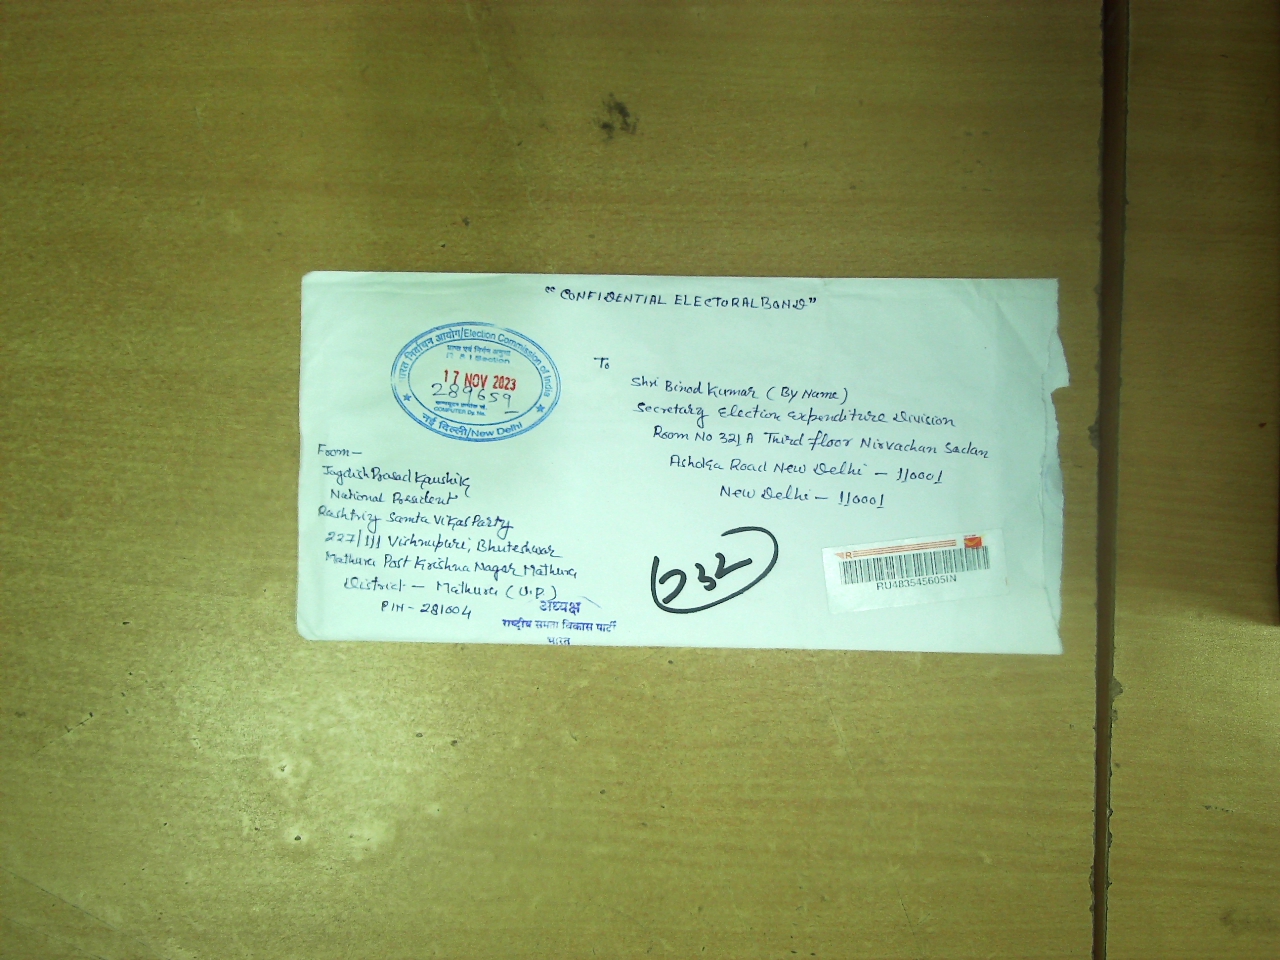 "CONFIDENTIAL ELECTORAL BOND"
भारत निर्वाचन आयोग/Election Commission of India
R & I Section
17 NOV 2023
289659
COMPUTER Dy. No.
नई दिल्ली/New Delhi
To
Shri Binod Kumar (By Name)
Secretary Election Expenditure Division
Room No 321 A Third floor Nirvachan Sadan
Ashoka Road New Delhi - 110001
New Delhi - 110001
From -
Jagdish Prasad Kaushik
National President
Rashtriy Samta Vikas Party
227/111 Vishnupuri, Bhuteshwar
Mathura Post Krishna Nagar Mathura
District - Mathura (U.P.)
PIN - 281004
अध्यक्ष
राष्ट्रीय समता विकास पार्टी
भारत
632
R
RU483545605IN